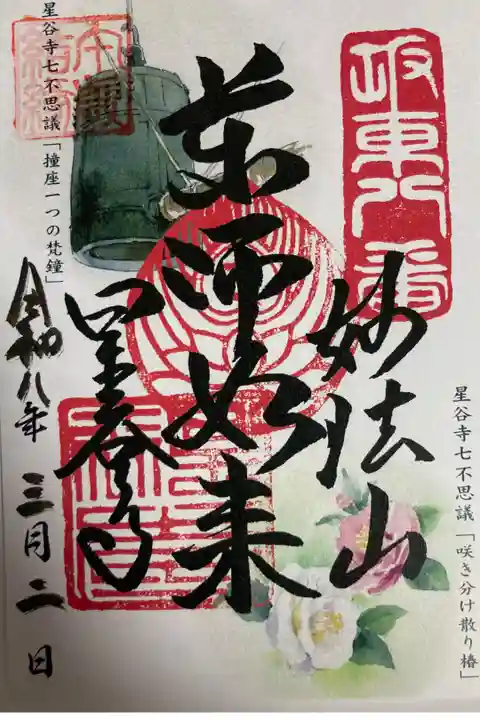 坂東八番
妙法山
星谷寺七不思議「咲き分け散り椿」
薬師如来
星谷寺
星谷寺七不思議「撞座一つの梵鐘」
令和八年 三月二日